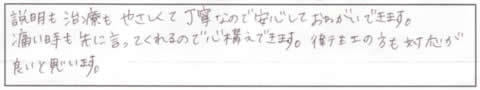 説明も治療も やさしくて丁寧なので安心しておねがいできます。
痛い時も先に言ってくれるので心構えできます。 の方も対応が
良いと思います。